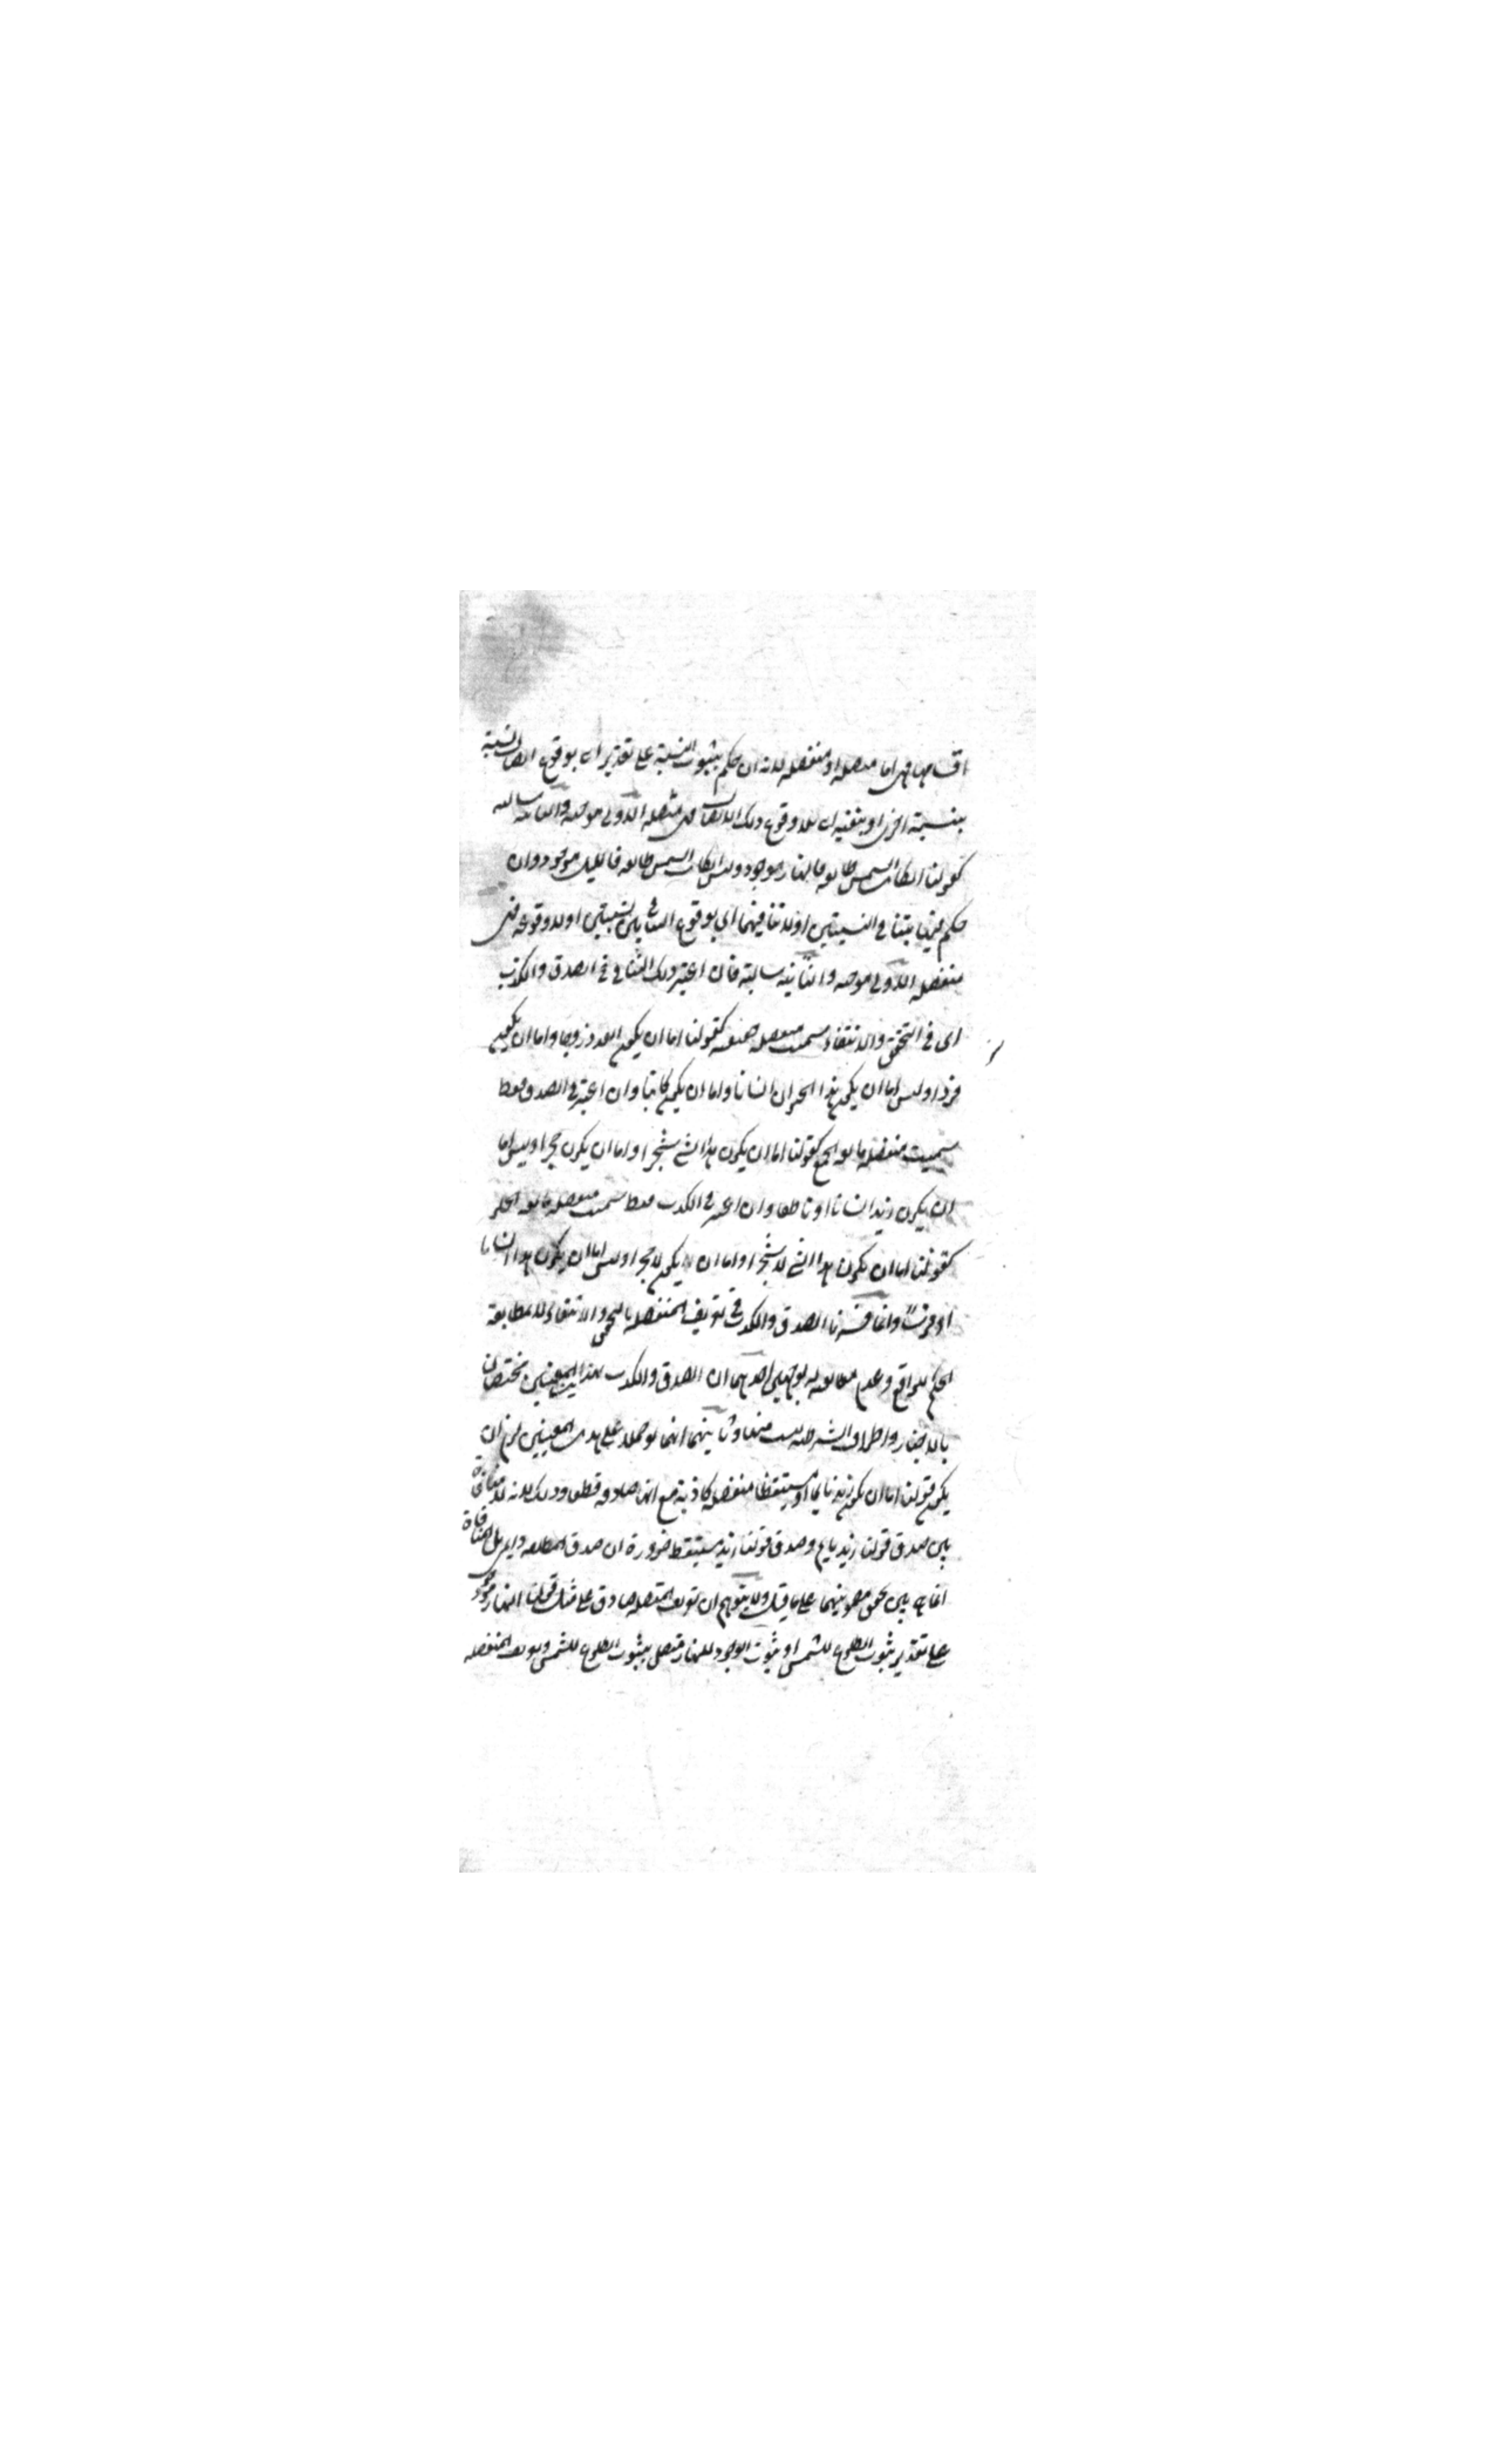 اقسامها فهى اما متصلة او منفصلة لانه ان حكم بثبوت النسبة على تقدير اى بوقوع اتصال نسبة
بنسبة اخرى او بنفيه اى بلا وقوع ذلك الاتصال فهى متصلة الاولى موجبة والثانية سالبة
كقولنا ان كانت الشمس طالعة فالنهار موجود وليس ان كانت الشمس طالعة فالليل موجود وان
حكم فيها بتنافى النسبتين او لا تنافيهما اى بوقوع التنافى بين نسبتين او لا وقوعه فهى
منفصلة الاولى موجبة والثانية سالبة فان اعتبر ذلك التنافى فى الصدق والكذب
اى فى التحقق والانتفاء سميت منفصلة حقيقية كقولنا اما ان يكون العدد زوجا واما ان يكون
فردا وليس اما ان يكون هذا الحيوان انسانا واما ان يكون كاتبا وان اعتبر فى الصدق فقط
سميت منفصلة مانعة الجمع كقولنا اما ان يكون هذا الشئ شجرا واما ان يكون حجرا وليس اما
ان يكون زيد انسانا او ناطقا وان اعتبر فى الكذب فقط سميت منفصلة مانعة الخلو
كقولنا اما ان يكون هذا الشئ لا شجرا واما ان يكون لا حجرا وليس اما ان يكون هذا انسانا
او فرسا وانما فسرنا الصدق والكذب فى تعريف المنفصلة بالتحقق والانتفاء لا بمطابقة
الحكم للواقع وعدم مطابقته له لوجهين احدهما ان الصدق والكذب بهذين المعنيين مختصان
بالاخبار واطراف الشرطية ليست منها وثانيهما انهما لو حملا على هذين المعنيين لزم ان
يكون قولنا اما ان يكون زيد نائما او مستيقظا منفصلة كاذبة مع انها صادقة قطعا وذلك لانه لا منافاة
بين صدق قولنا زيد نايم وصدق قولنا زيد مستيقظ ضرورة ان صدق المطلقة دايم بل المنافاة
انما هى بين تحقق مضمونيهما على ما قيل ولا يتوهم ان تعريف المتصلة صادق على مثل قولنا النهار موجود
على تقدير ثبوت الطلوع للشمس او ثبوت الوجود للنهار متصل بثبوت الطلوع للشمس وتعريف المنفصلة